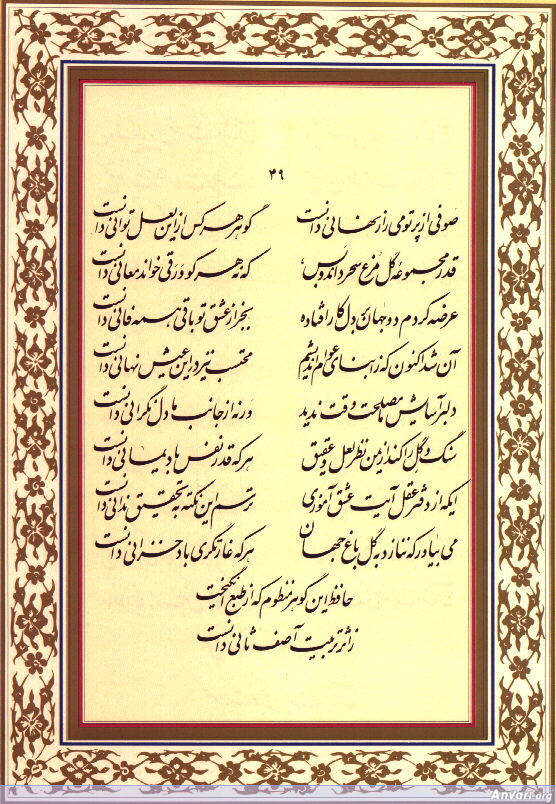 ۴۹
صوفی از پرتو می راز نهانی دانست گوهر هر کس ازین لعل توانی دانست
قدر مجموعه گل مرغ سحر داند و بس که نه هر کو ورقی خواند معانی دانست
عرضه کردم دو جهان بر دل کار افتاده بجز از عشق تو باقی همه فانی دانست
آن شد اکنون که ز ابنای عوام اندیشم محتسب نیز درین عیش نهانی دانست
دلبر آسایش ما مصلحت وقت ندید ورنه از جانب ما دل نگرانی دانست
سنگ و گل را کند از یمن نظر لعل و عقیق هر که قدر نفس باد یمانی دانست
ایکه از دفتر عقل آیت عشق آموزی ترسم این نکته به تحقیق ندانی دانست
می بیاور که ننازد به گل باغ جهان هر که غارتگری باد خزانی دانست
حافظ این گوهر منظوم که از طبع انگیخت
ز اثر تربیت آصف ثانی دانست
Anvari.org